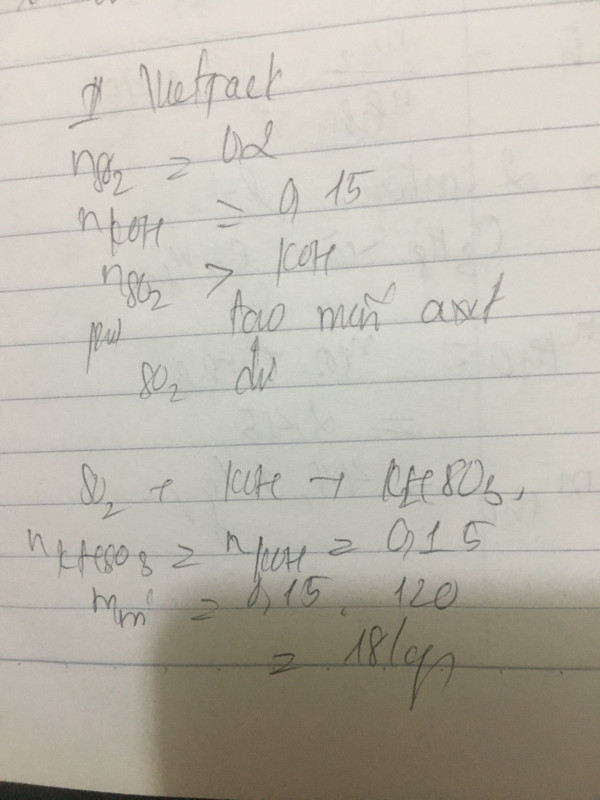 Vietjack
nSO2 = 0,2
nKOH = 0,15
nSO2 > KOH
pư tạo muối axit
SO2 dư
SO2 + KOH → KHSO3
nKHSO3 = nKOH = 0,15
mm' = 0,15. 120
= 18(g)